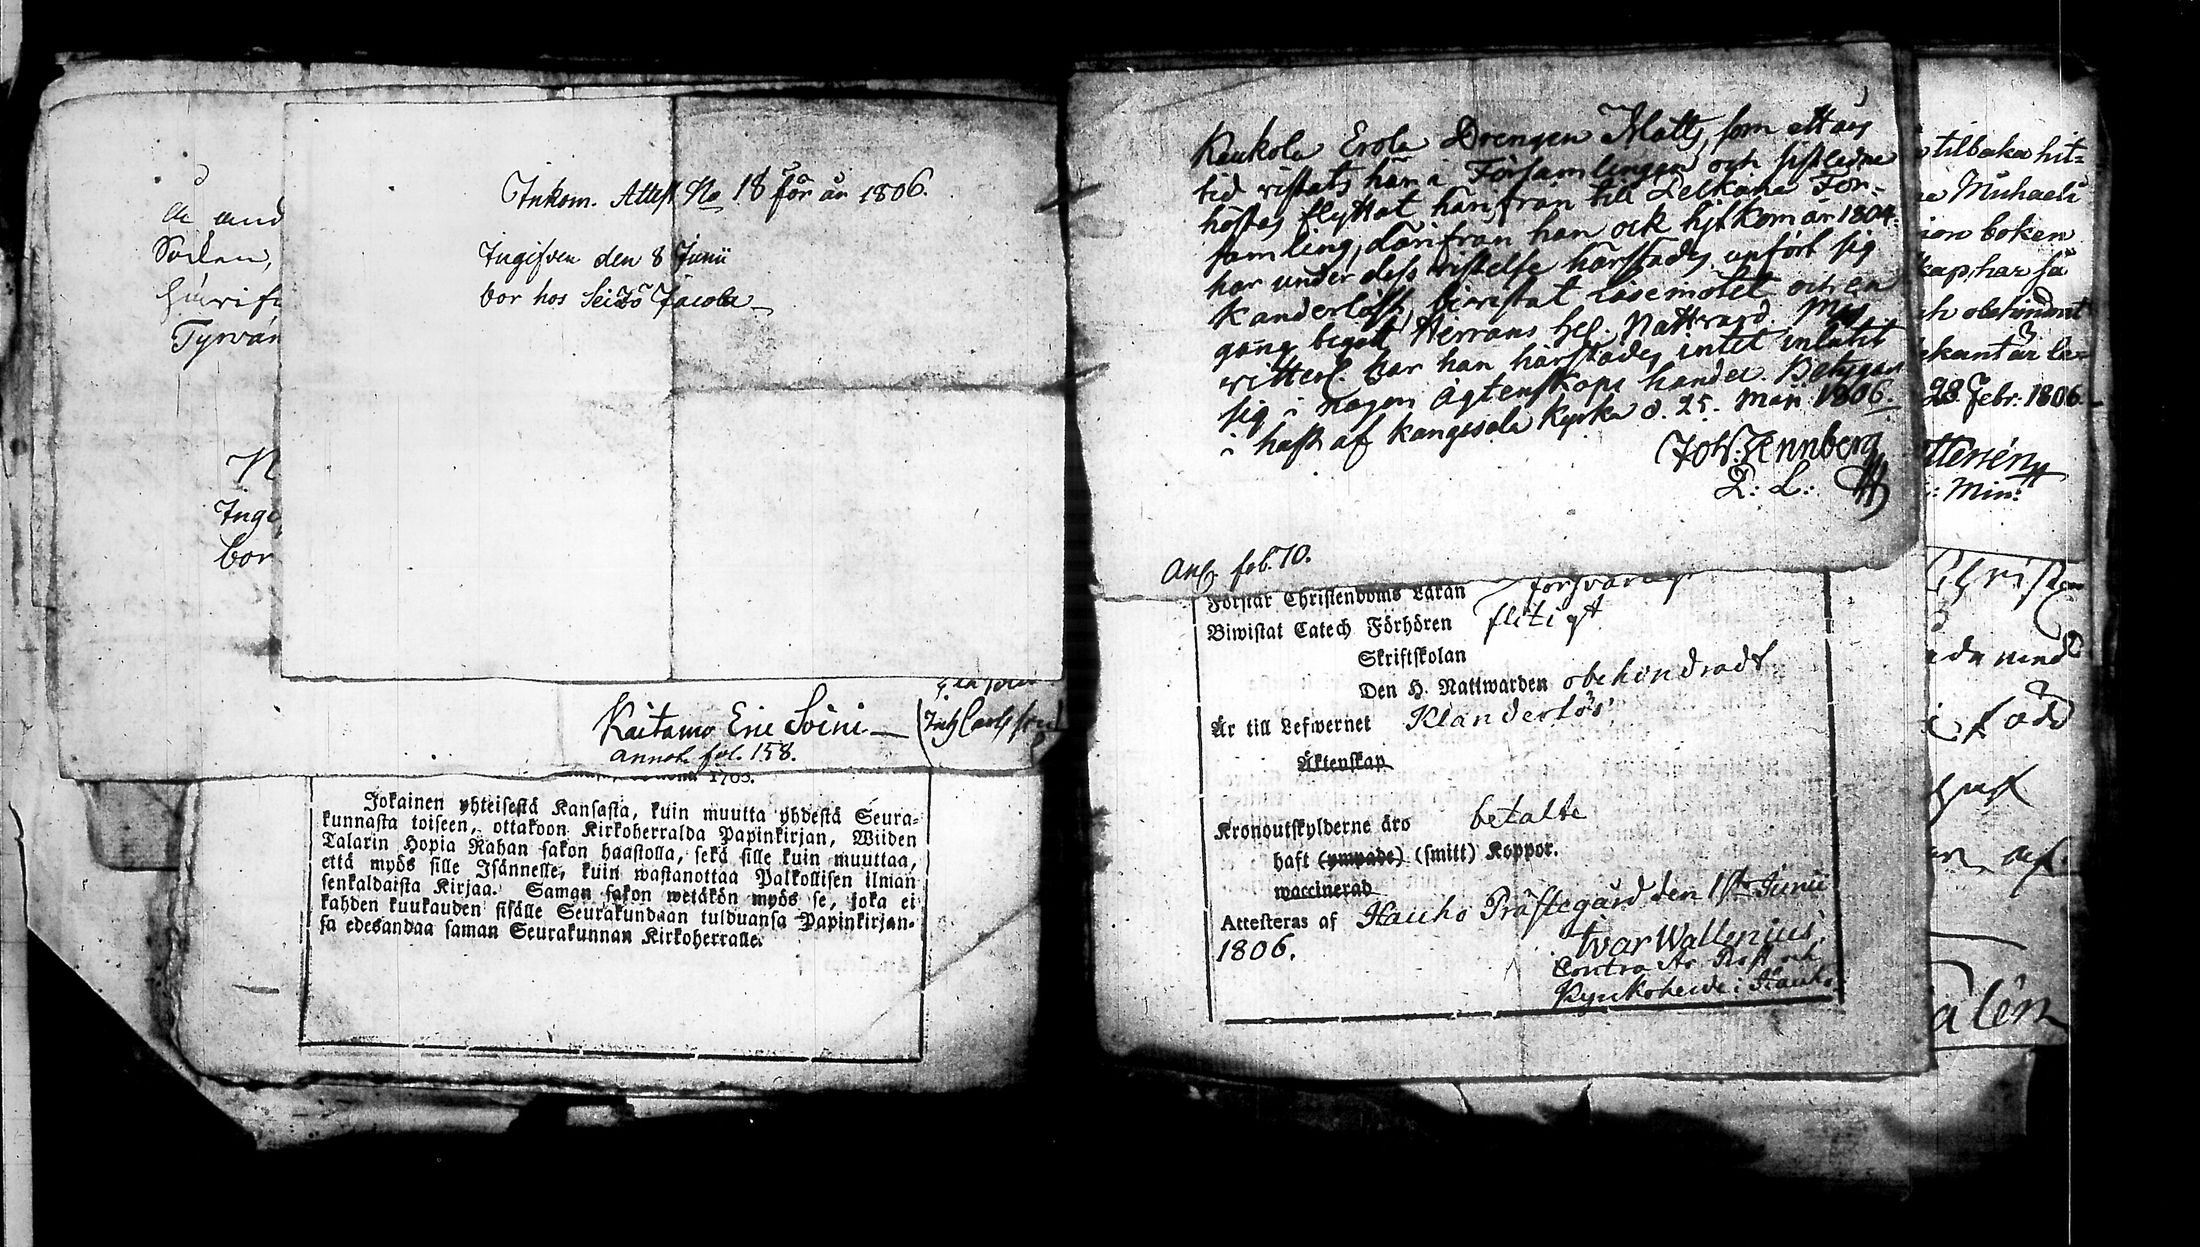 Inkom. Attest No 18 för år 1806.
Ingifven den 8 Junii
bor hos Jacola
Sörlen,
Tyrvän
Inge
bor
Kaitamo Eric Soini
annot. fol. 158.
Jokainen yhteisestä Kansasta, kuin muutta yhdestä Seura-
kunnasta toiseen, ottakoon Kirkoherralda Papinkirjan, Wiiden
Talarin Hopia Rahan sakon haastolla, sekä sille kuin muuttaa,
että myös sille Isännelle, kuin wastanottaa Palkollisen ilman
senkaldaista Kirjaa. Saman sakon wetäkön myös se, joka ei
kahden kuukauden sisälle Seurakundaan tulduansa Papinkirjan-
sa edesandaa saman Seurakunnan Kirkoherralle.
Keukola Erola Drengen Matts, som ett års
tid vistats här i Församlingen och sistledne
höstes flyttat härifrån till Lelkäne För-
samling, därifrån han ock hitkom år 1804.
har under dess vistelse härstädes upfört sig
Kanderlöst, biwistat läsemötet och en
gång begått Herrans hel. Nattvard. Mig
vitterl. har han härstädes intet inlåtit
sig i någon ägtenskaps handel. Betygas
i hast af Kangasala kyrka d. 25. Maii 1806.
Joh: Ennberg
P: L:
fol. 70.
Förstår Christendoms Läran försvarligt
Biwistat Catech Förhören flitigt
Skriftskolan
Den H. Nattwarden obehindradt
Är till Lefwernet Klanderlös
Äktenskap
Kronoutskylderne äro betalte
haft (ympade) (smitt) Koppor.
waccinerad
Attesteras af Hauho Prästegård den 1sta Junii
1806.
Ivar Wallenius
Contra Pr. Prost och
Kyrkoherde i Hauho.
tilbaka hit=
Michaeli
ion boken
kap, har så
h obehindrat
ekant är
28 Febr: 1806
: Min:
Christen
född
alén